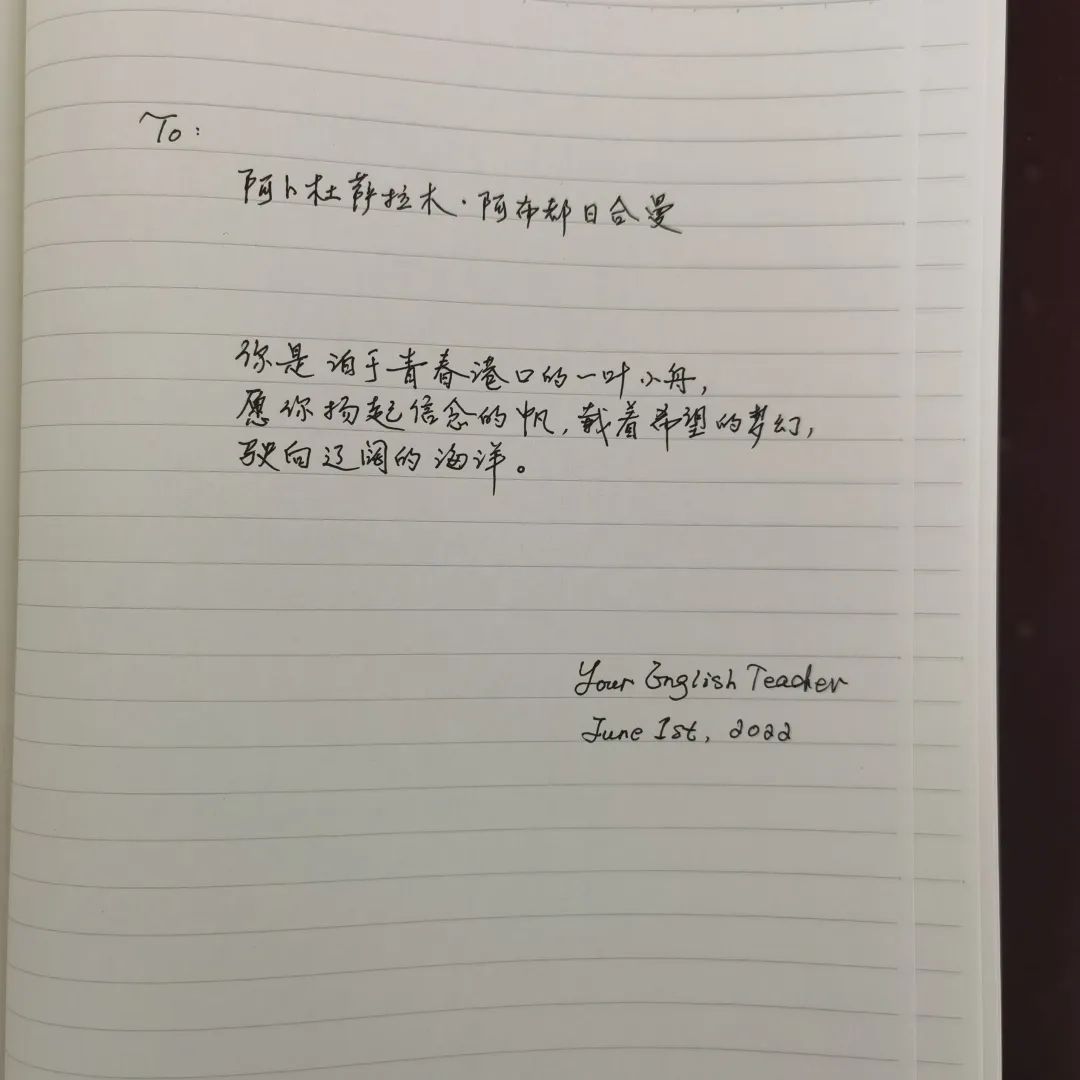 To:
阿卜杜萨拉木·阿布都日合曼
你是泊于青春港口的一叶小舟,
愿你扬起信念的帆,载着希望的梦幻,
驶向辽阔的海洋。
Your English Teacher
June 1st, 2022